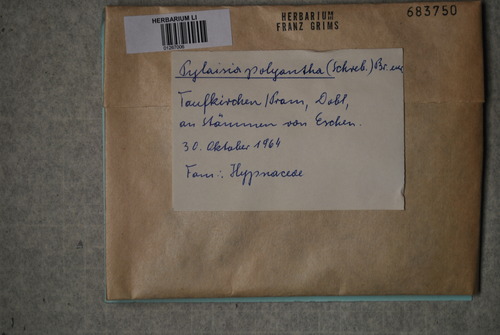 HERBARIUM LI
HERBARIUM
FRANZ GRIMS
683750
Pylaisia polyantha (Schreb.) Br. eur
Taufkirchen/Pram, Dobl,
an Stämmen von Eschen.
30. Oktober 1964
Fam.: Hypnaceae